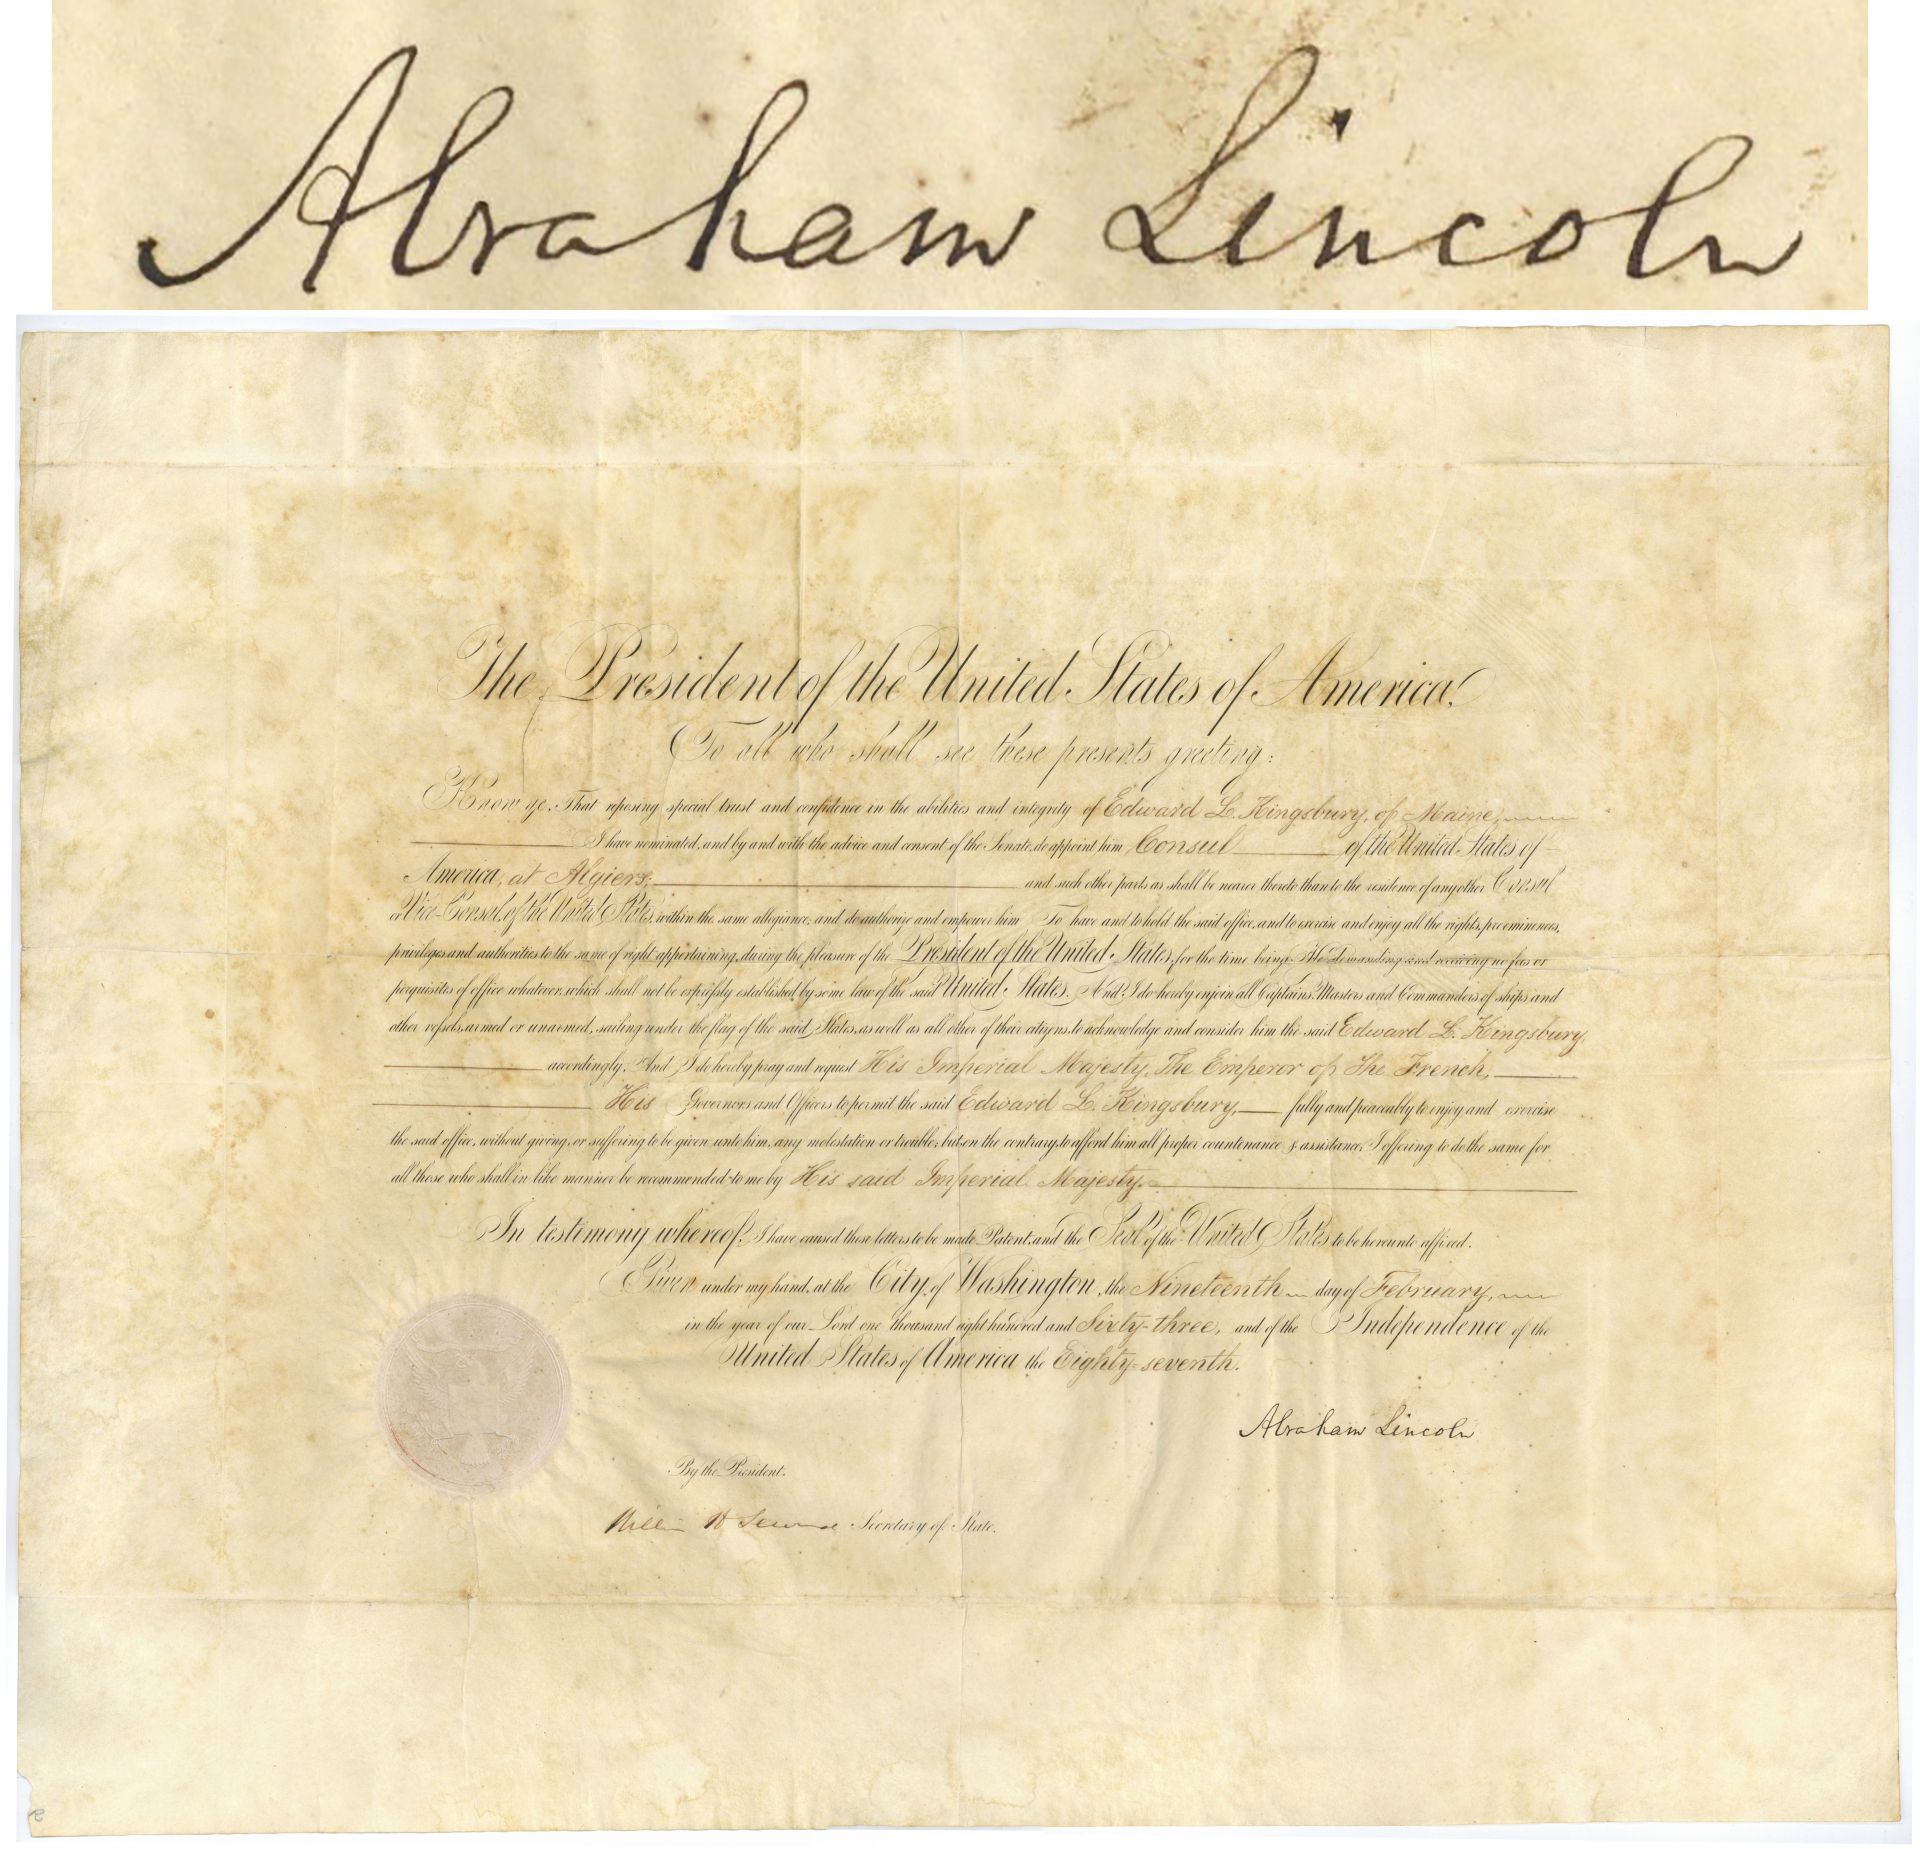 Abraham Lincoln
The President of the United States of America,
To all who shall see these presents greeting:
Know ye, That reposing special trust and confidence in the abilities and integrity of Edward L. Kingsbury, of Maine,
I have nominated, and by and with the advice and consent of the Senate, do appoint him Consul of the United States of
America, at Algiers, and such other parts as shall be nearer thereto than to the residence of any other Consul
or Vice-Consul, of the United States, within the same allegiance; and do authorize and empower him To have and to hold the said office, and to exercise and enjoy all the rights, preeminences,
privileges and authorities to the same of right appertaining, during the pleasure of the President of the United States, for the time being. He demanding and receiving no fees or
perquisites of office whatever, which shall not be expressly established by some law of the said United States. And, I do hereby enjoin all Captains, Masters and Commanders of ships and
other vessels, armed or unarmed, sailing under the flag of the said States, as well as all other of their citizens, to acknowledge and consider him the said Edward L. Kingsbury,
accordingly. And I do hereby pray and request His Imperial Majesty, The Emperor of the French,
His Governors and Officers to permit the said Edward L. Kingsbury, fully and peaceably to enjoy and exercise
the said office, without giving, or suffering to be given unto him, any molestation or trouble; but on the contrary, to afford him all proper countenance & assistance; I offering to do the same for
all those who shall in like manner be recommended to me by His said Imperial Majesty.
In testimony whereof, I have caused these letters to be made Patent, and the Seal of the United States to be hereunto affixed.
Given under my hand, at the City of Washington, the Nineteenth day of February,
in the year of our Lord one thousand eight hundred and Sixty-three, and of the Independence of the
United States of America the Eighty-seventh.
Abraham Lincoln
By the President.
William H Seward Secretary of State.